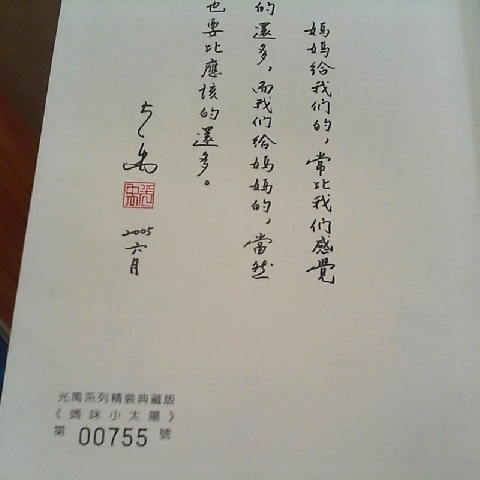 媽媽給我们的，常比我们感覺
的還多，而我们給媽媽的，當然
也要比應該的還多。
2005
六月
光禹系列精裝典藏版
《媽咪小太陽》
第 00755 號